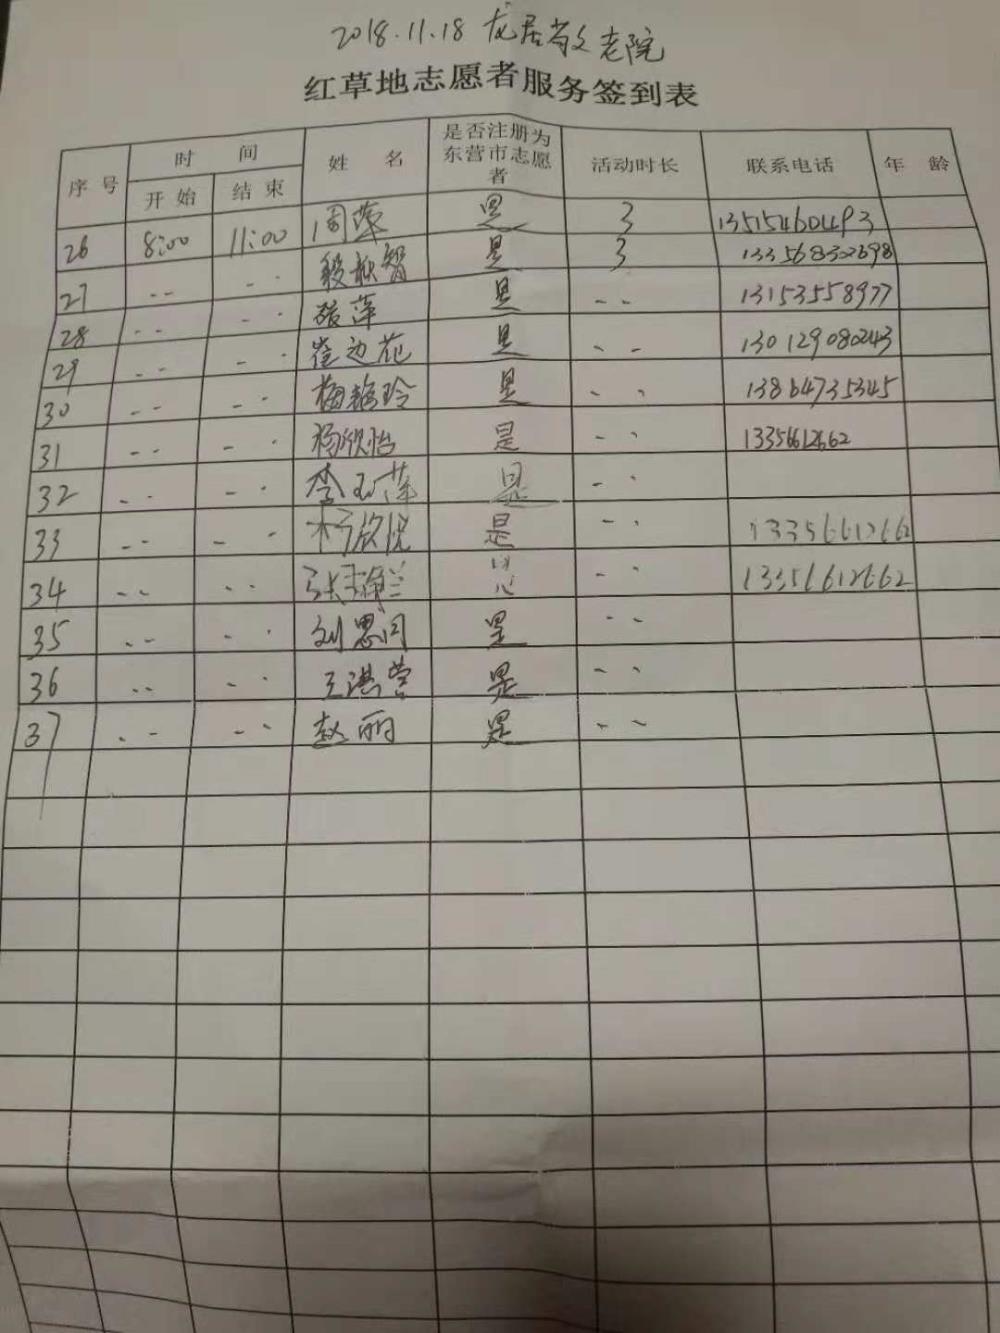 2018.11.18 龙居敬老院
红草地志愿者服务签到表
序号 时间 姓名 是否注册为东营市志愿者 活动时长 联系电话 年龄
开始 结束
26 8:00 11:00 周萍 是 3 13515460493
27 是 3 13356832698
28 张萍 是 13153558977
29 崔边花 是 130129080243
30 梅艳玲 是 13864735345
31 杨欣怡 是 13356612662
32 李玉萍 是
33 杨欣悦 是 13356612662
34 是 13356612662
35 刘思同 是
36 王洪营 是
37 赵丽 是